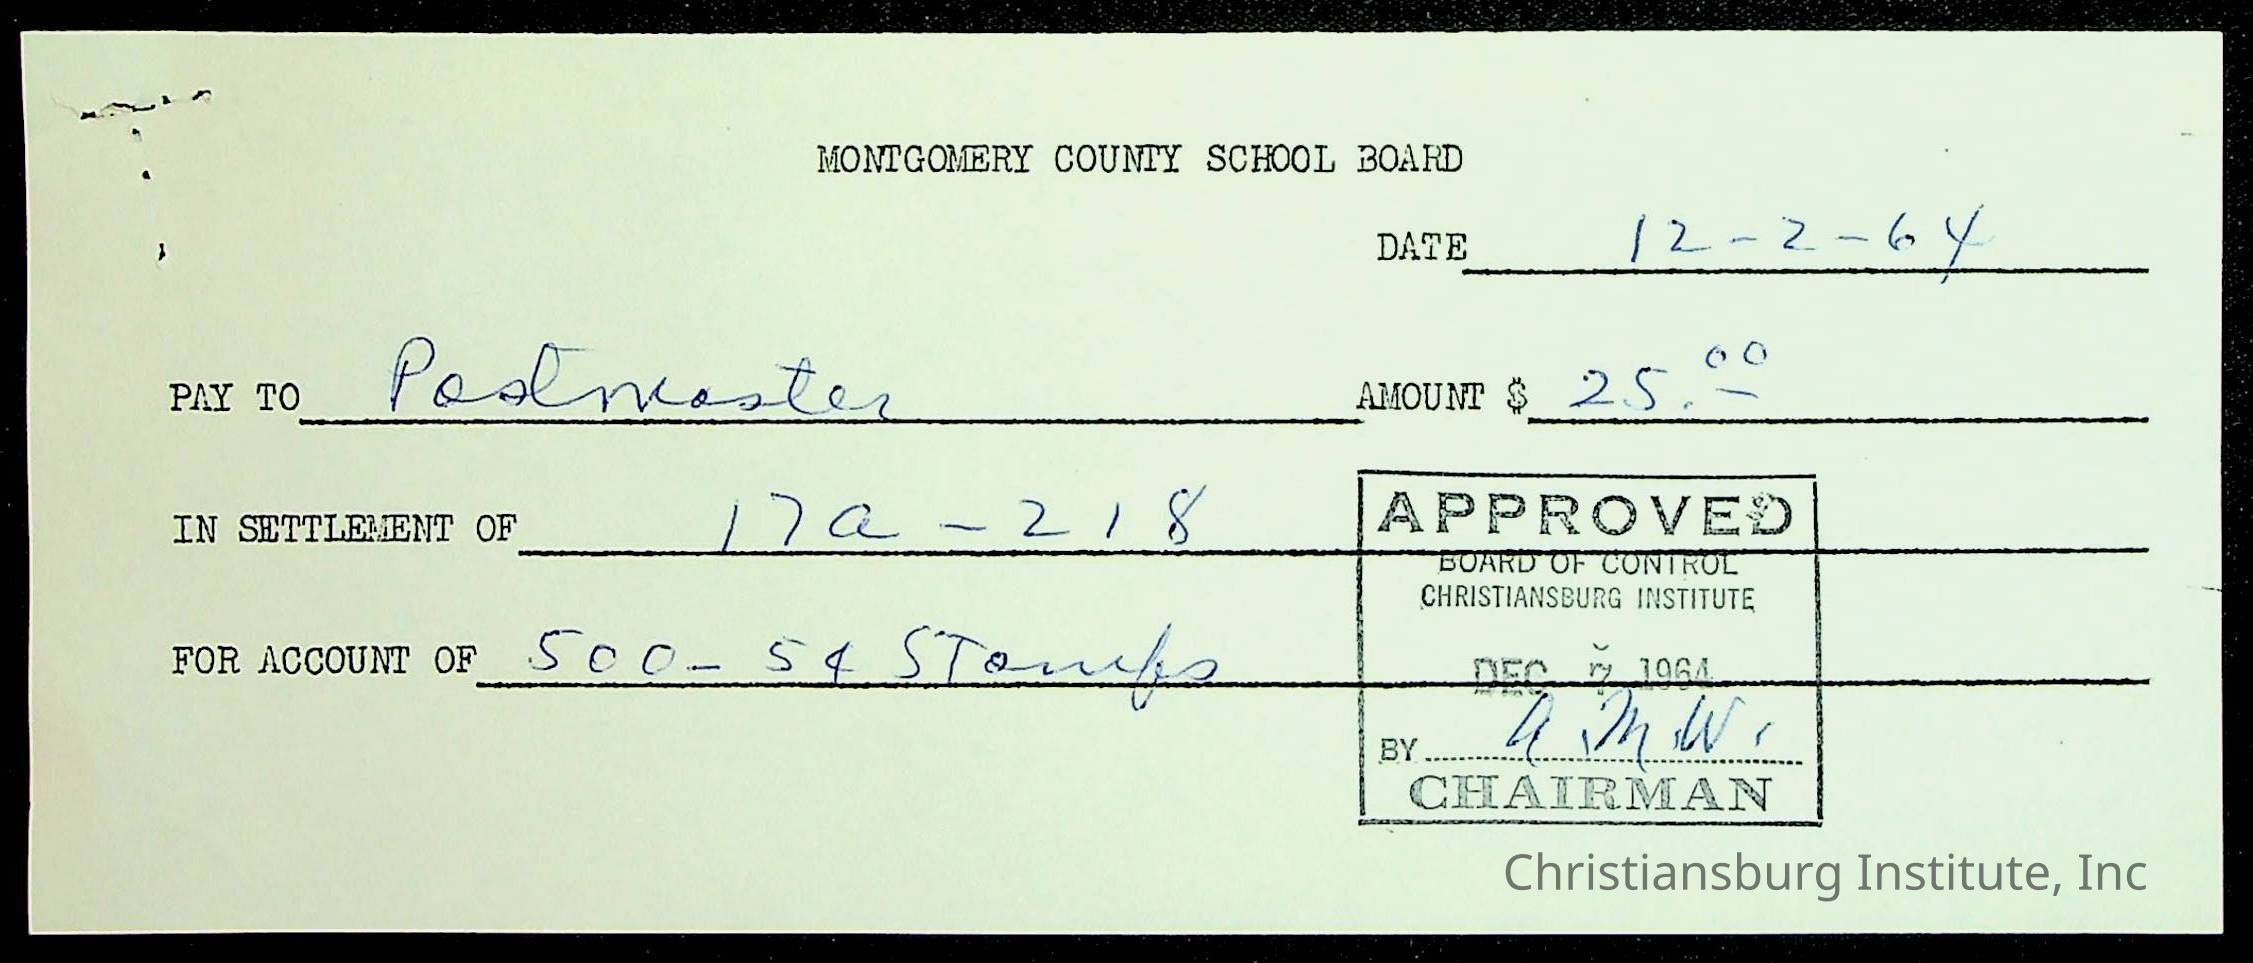 MONTGOMERY COUNTY SCHOOL BOARD
DATE 12-2-64
PAY TO Postmaster AMOUNT $ 25.00
IN SETTLEMENT OF 17a-218
FOR ACCOUNT OF 500- 5¢ Stamps
APPROVED
BOARD OF CONTROL
CHRISTIANSBURG INSTITUTE
DEC 7 1964
BY A.M.W.
CHAIRMAN
Christiansburg Institute, Inc